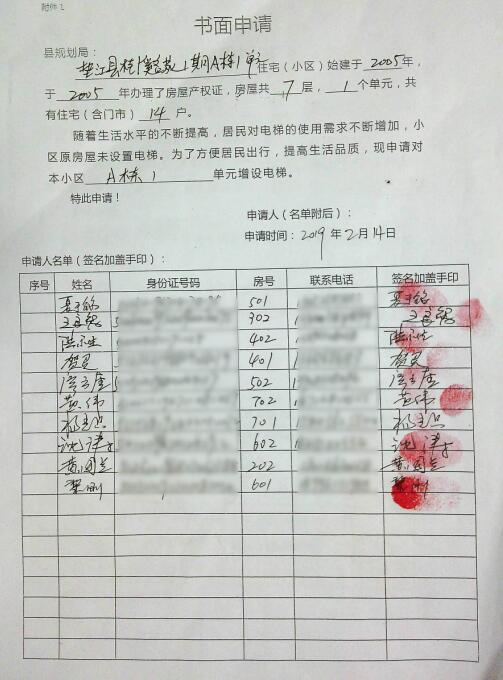 附件1
书面申请
县规划局：
垫江县桂 1期A栋1单元住宅（小区）始建于2005年，
于2005年办理了房屋产权证，房屋共7层，1个单元，共
有住宅（含门市）14户。
随着生活水平的不断提高，居民对电梯的使用需求不断增加，小
区原房屋未设置电梯。为了方便居民出行，提高生活品质，现申请对
本小区A栋1单元增设电梯。
特此申请！
申请人（名单附后）：
申请时间：2019年2月14日
申请人名单（签名加盖手印）：
序号 姓名 身份证号码 房号 联系电话 签名加盖手印
501
302
402
贺 401 贺
502
黄伟 702 黄伟
701
沈津 602 沈津
黄国兰 202 黄国兰
601